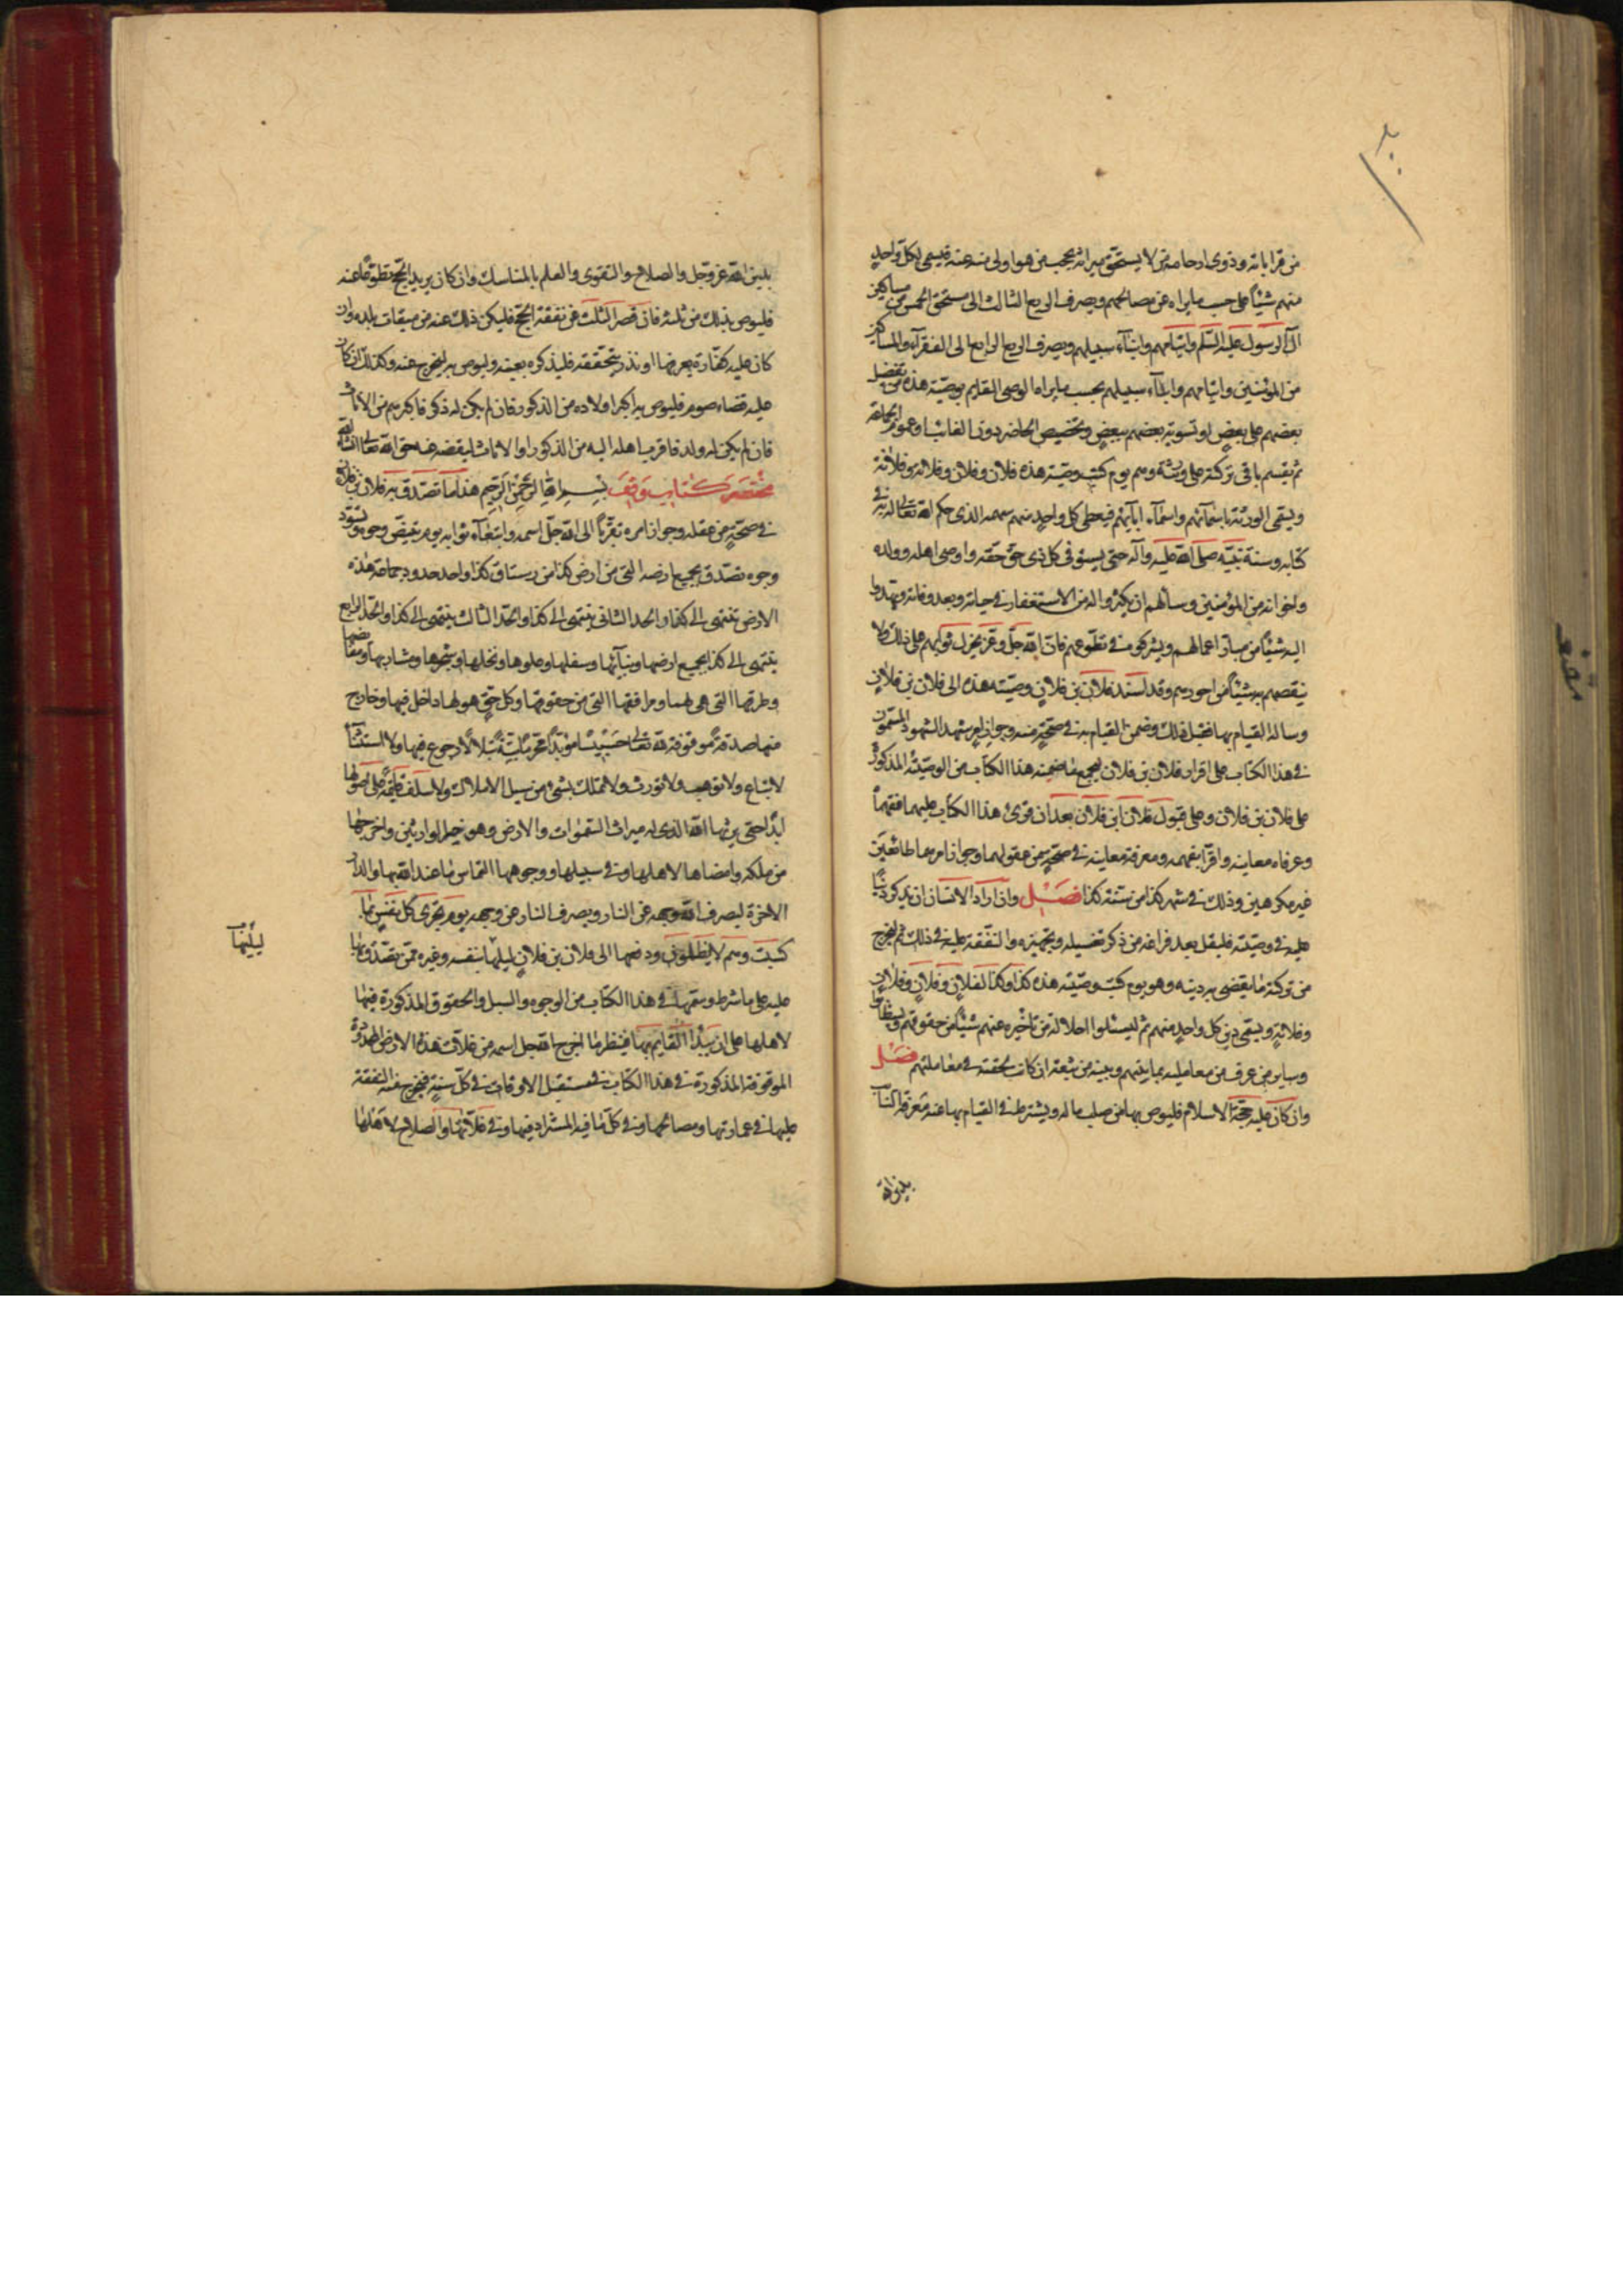 من قراباته وذوي ارحامه ممن لا يستحق ميراثه بحجب من هو اولى منه عنه فيسمى لكل واحد
منهم شيئا على حسب ما يراه من مصالحهم ويصرف الربع الثالث الى مستحق الخمس من مساكين
آل الرسول عليه السلم وايتامهم وابناء سبيلهم ويصرف الربع الرابع الى الفقراء والمساكين
من المؤمنين وايتامهم وابناء سبيلهم بحسب ما يراه الوصى القايم بوصيته هذه من تفضيل
بعضهم على بعض او تسوية بعضهم ببعض وتخصيص الحاضر دون الغائب او عموم الجماعة
ثم يقسم باقى تركته على ورثته وهم يوم كتب وصيته هذه فلان وفلان وفلانة وفلانة
ويسمى الورثة باسمآئهم واسمآء ابآئهم فيعطى كل واحد منهم سهمه الذى حكم الله تعالى له به فى
كتابه وسنة نبيه صلى الله عليه وآله حتى يستوفى كل ذى حق حقه واوصى اهله وولده
واخوانه من المؤمنين وسألهم ان يكثروا له من الاستغفار فى حياته وبعد وفاته ويهدوا
اليه شيئا من مبار اعمالهم ويشركوه فى تطوعهم فان الله جل وعز يجزل ثوابهم على ذلك ولا
ينقصهم به شيئا من اجورهم وقد اسند فلان بن فلان وصيته هذه الى فلان بن فلان
وساله القيام بها فقبل ذلك وضمن القيام به فى صحة منه وجواز امر شهد الشهود المسمون
فى هذا الكتاب على اقرار فلان بن فلان بجميع ما ضمنه هذا الكتاب من الوصية المذكورة
على فلان بن فلان وعلى قبول فلان ابن فلان بعد ان قرئ هذا الكتاب عليهما ففهماه
وعرفاه معاينه واقرا بفهمه ومعرفة معاينه فى صحة من عقولهما وجواز امرهما طائعين
غير مكرهين وذلك فى شهر كذا من سنة كذا فصل وان اراد الانسان ان يذكر دينا
عليه فى وصيته فليقل بعد فراغه من ذكر تغسيله وتجهيزه والنفقة عليه فى ذلك ثم يخرج
من تركته ما يقضى به دينه وهو يوم كتب وصيته هذه كذا وكذا لفلان وفلان وفلان
وفلانة ويسمى دين كل واحد منهم ثم ليسئلوا احلاله من تأخيره عنهم شيئا من حقوقهم
وساير من عرف من معامليه بمايتهم وبينه من تبعة ان كانت لحقته فى معاملتهم فصل
وان كان عليه حجة الاسلام فليوص بها من صلب ماله ويشترط فى القيام بها عنه
بدين الله
بدين الله عز وجل والصلاح والتقوى والعلم بالمناسك وان كان يريد الحج تطوعا عنه
فليوص بذلك من ثلثه فان قصر الثلث عن نفقة الحج فليكن ذلك عنه من ميقات بلده وان
كان عليه كفارة يعرفها او نذر يتحققه فليذكره بعينه وليوص به ليخرج عنه وكذلك ان كان
عليه قضاء صوم فليوص به اكبر اولاده من الذكور فان لم يكن له ذكر فاكبرهم من الاناث
فان لم يكن له ولد فاقرب اهله اليه من الذكور او الاناث ليقضه عنه حق الله تعالى انشاء الله
مختصر كتاب وقف بسم الله الرحمن الرحيم هذا ما تصدق به فلان بن فلان
فى صحة من عقله وجواز امره تقربا الى الله جل اسمه وابتغاء ثوابه يوم تبيض وجوه وتسود
وجوه تصدق بجميع ارضه التى من ارض كذا من رستاق كذا واحد حدود جماعة هذه
الارض ينتهى الى كذا والحد الثانى ينتهى الى كذا والحد الثالث ينتهى الى كذا والحد الرابع
ينتهى الى كذا بجميع ارضها وبنائها وسفلها وعلوها ونخلها وشجرها ومشاربها
وطرقها التى هى لها ومرافقها التى من حقوقها وكل حق هو لها داخل فيها وخارج
منها صدقة موقوفة لله تعالى حبيسا مؤبدا محرما بتة بتلا لا رجوع فيها ولا استثناء
لا تباع ولا توهب ولا تورث ولا تملك بشئ من سبل الاملاك ولا تتلف قائمة على اصولها
ابدا حتى يرثها الله الذى له ميراث السموات والارض وهو خير الوارثين واخرجها
من ملكه وامضاها لاهلها وفى سبيلها ووجوهها التماس ما عند الله بها والدار
الاخرة ليصرف الله وجهه عن النار ويصرف النار عن وجهه يوم تجزى كل نفس بما
كسبت وهم لا يظلمون ودفعها الى فلان بن فلان ليليها بنفسه وغيره ممن تصدق بها
عليه على ما شرط وسمى فى هذا الكتاب من الوجوه والسبل والحقوق المذكورة فيها
لاهلها على ان يبدأ القايم بها فينظر ما اخرج الله جل اسمه من غلات هذه الارض
الموقوفة المذكورة فى هذا الكتاب فى مستقبل الاوقات فى كل سنة فيخرج منه النفقة
عليها فى عمارتها ومصالحها وفى كل ما فيه المستزاد فيها وفى غلاتها والصلاح لاهلها
ليليها